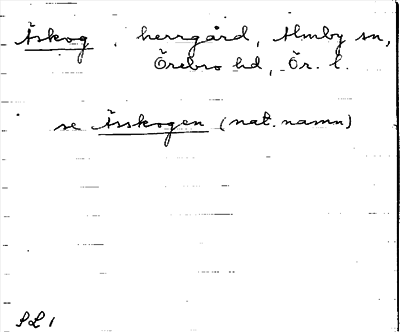 Äskog, herrgård, Almby sn,
Örebro hd, Ör. l.
se Ässkogen (nat. namn)
SL 1